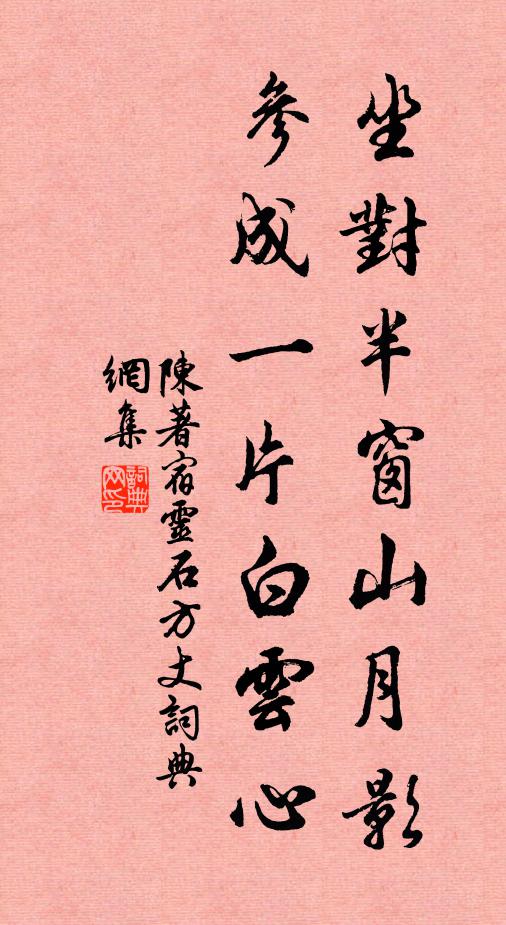 坐對半窗山月影
參成一片白雲心
陳著宿靈石方丈詞典
網集
詞典網印